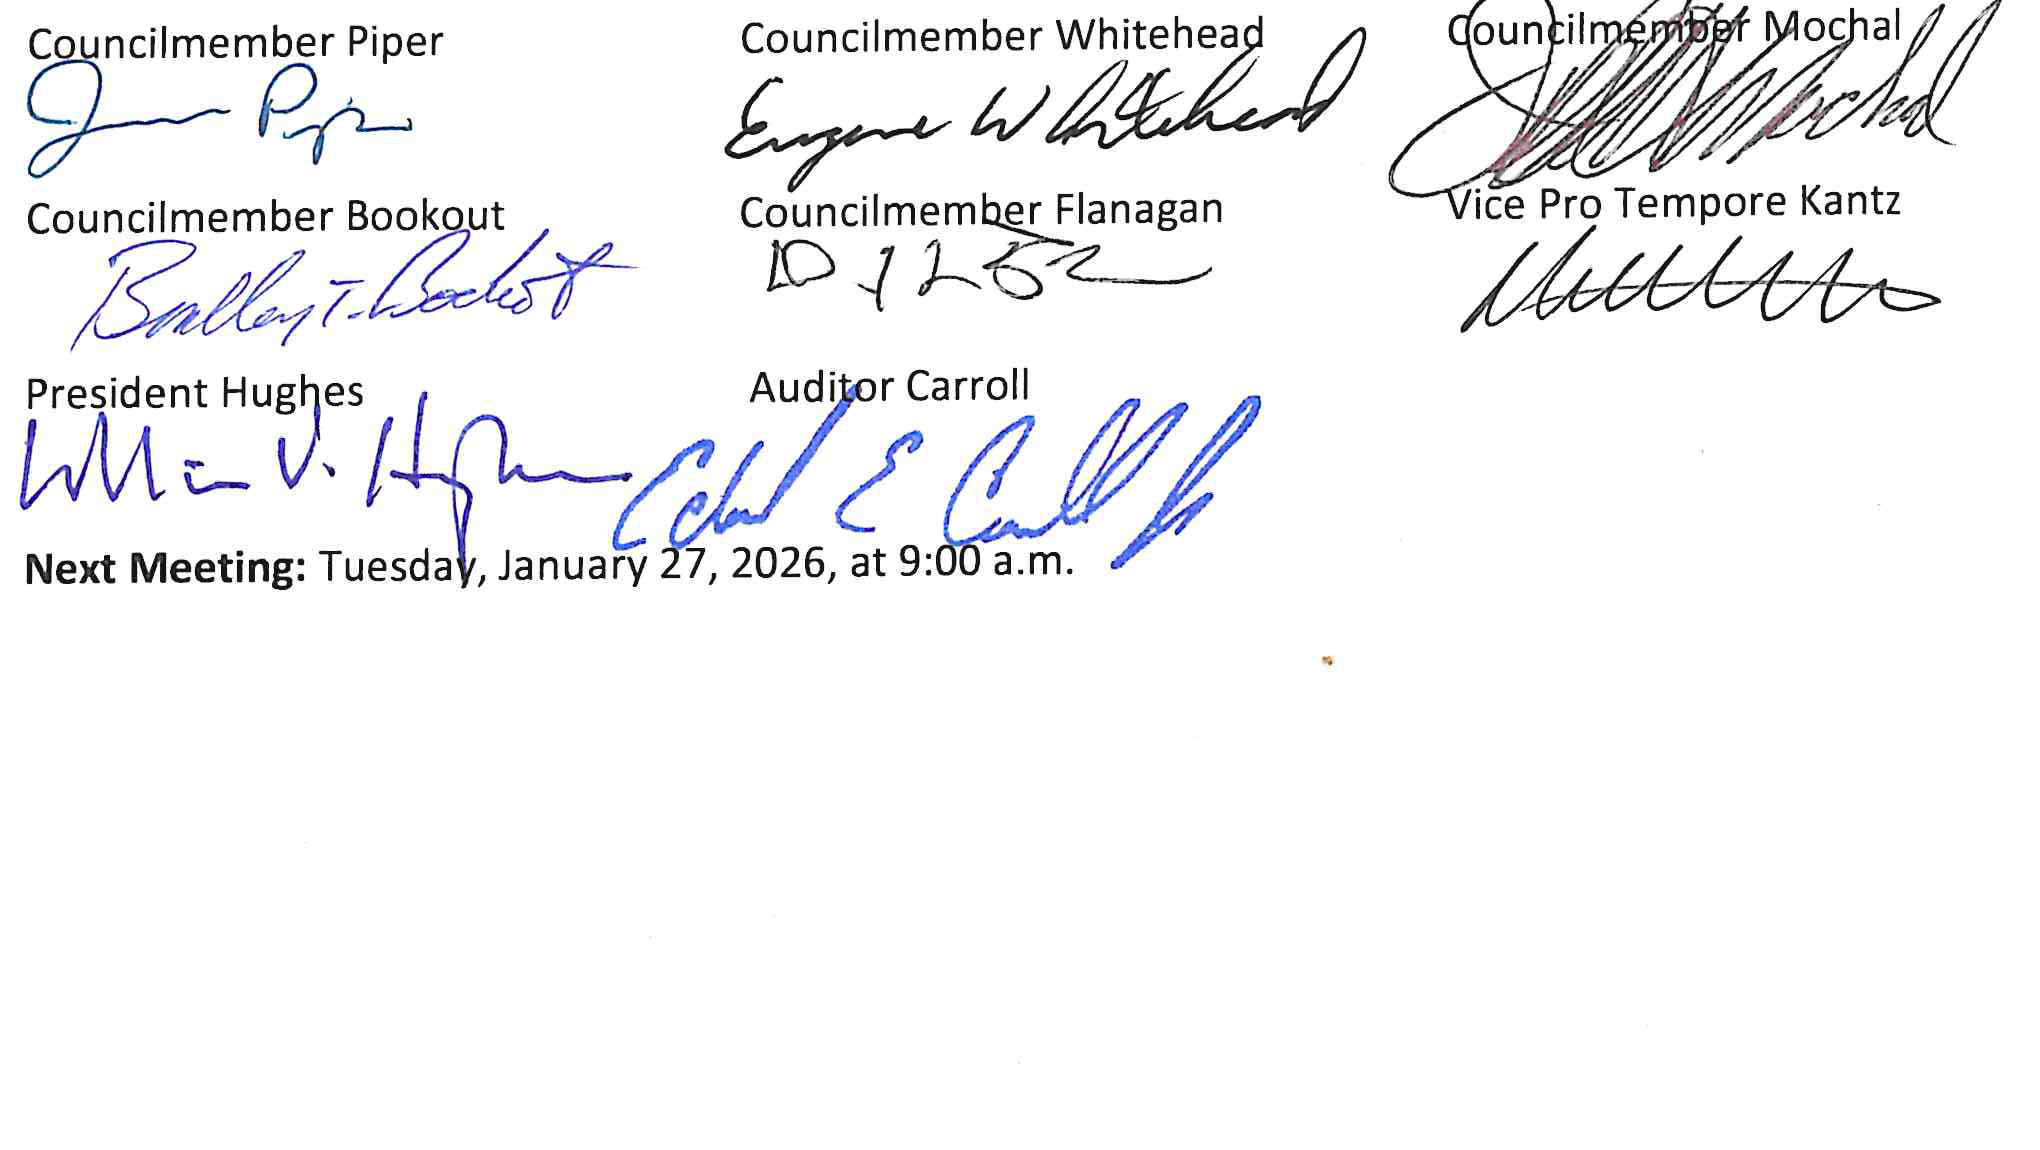 Councilmember Piper Councilmember Whitehead Councilmember Mochal
Piper Eugene Whitehead Mochal
Councilmember Bookout Councilmember Flanagan Vice Pro Tempore Kantz
Bradley T. Bookout
President Hughes Auditor Carroll
William V. Hughes Edward E Carroll Jr
Next Meeting: Tuesday, January 27, 2026, at 9:00 a.m.